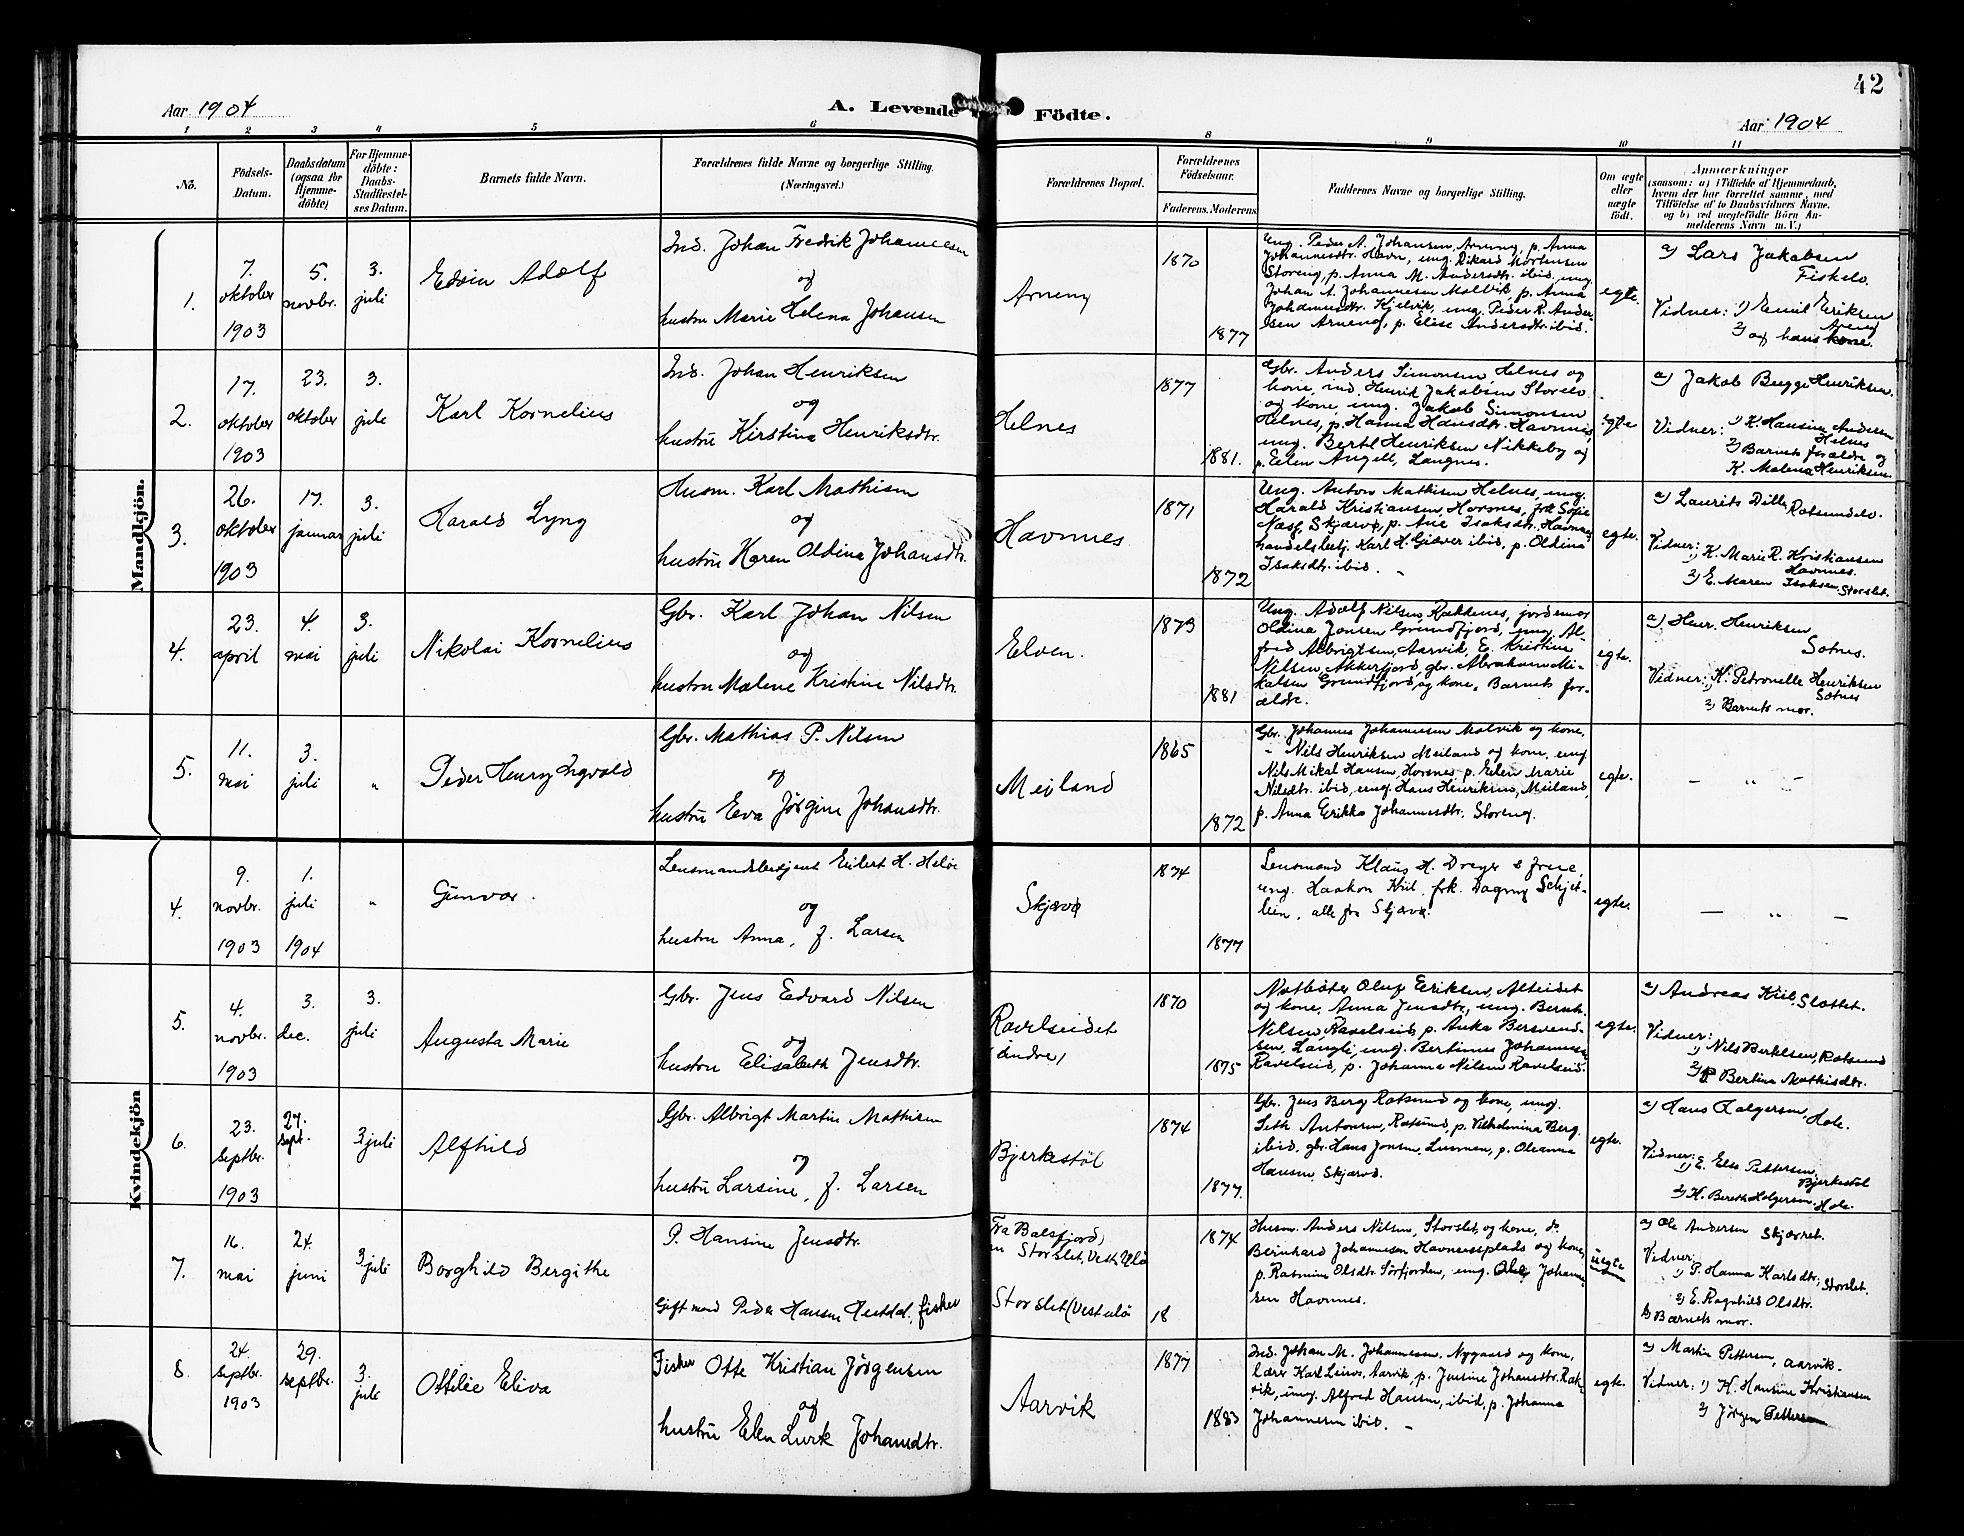 42
Aar 1904
A. Levende Födte.
Aar 1904
1 2 3 4 5 6 8 9 10 11
No.
Födsels-
Datum.
Daabsdatum
(ogsaa for
Hjemme-
döbte)
For Hjemme-
döbte:
Daabs-
Stadfæstel-
ses Datum.
Barnets fulde Navn.
Forældrenes fulde Navne og borgerlige Stilling.
(Næringsvei.)
Forældrenes Bopæl.
Forældrenes
Födselsaar.
Faderens. Moderens
Faddernes Navne og borgerlige Stilling.
Om ægte
eller
uægte
födt.
Anmærkninger
(saasom: a) i Tilfælde af Hjemmedaab,
hvem der har forrettet samme, med
Tilföielse af to Daabsvidners Navne,
og b) ved uægtefödte Börn An-
melderens Navn m. V.)
Mandkjön.
1.
7.
oktober
1903
5.
novbr.
3.
juli
Edvin Adolf
Ind. Johan Fredrik Johannesen
og
hustru Marie Helena Johansen
Arneng
1870
1877
Ung. Peder A. Johansen, Arneng, p. Anna
Johannesdtr. Havn, ung. Rikard Mortensen
Storeng, p. Anna M. Andersdtr. ibid, ung.
Johan A. Johannesen Molvik, p. Anna
Johannesdtr. Kjelvik, ung. Peder R. Ander-
sen Arneng, p. Elise Andersdtr. ibid.
egte.
a) Lars Jakobsen
Fiskelo.
Vidner: 1) Emil Eriksen
Areng
2) og hans kone.
2.
17.
oktober
1903
23.
oktober
3.
juli
Karl Kornelius
Ind. Johan Henriksen
og
hustru Kirstina Henriksdtr.
Helnes
1877
1881.
Gbr. Anders Simonsen Helnes og
kone, ind. Henrik Jakobsen Storeso
og kone, ung. Jakob Simonsen
Helnes, p. Hanna Hansdtr. Havnnes,
ung. Bertl Henriksen Nikkeby og
p. Elen Angell, Langnes.
egte
a) Jakob Bugge Henriksen.
Vidner: 1) K. Hansine Andersen
Helnes
2) Barnets forældre og
K. Malena Henriksen.
3.
26.
oktober
1903
17.
januar
3.
juli
Harald Lyng
Husm. Karl Mathisen
og
hustru Karen Oldina Johansdtr.
Havnnes
1871
1872
Ung. Anton Mathisen Helnes, ung.
Harald Kristiansen, Havnnes, frk Sofie
Næss, Skjærvø, p. Ane Isaksdtr. Havnnes,
handelsbetj. Karl H. Giæver ibid, p. Oldina
Isaksdtr. ibid.
egte.
a) Laurits Dilling Rotsundelv.
Vidner:
1) K. Marie R. Kristiansen
Havnnes.
2) E. Maren Isaksen, Storslet.
4.
23.
april
4.
mai
3.
juli
Nikolai Kornelius
Gbr. Karl Johan Nilsen
og
hustru Malene Kristine Nilsdtr.
Elven.
1873
1881
Ung. Adolf Nilsen, Kækkenes, jordemor
Oldina Jensen Grundfjord, ung. Al-
fred Albrigtsen, Aarvik, E. Kristine
Nilsen, Akkerfjord, gbr. Abraham Mi-
kalsen Grundfjord, og kone, Barnets for-
ældre.
egte.
a) Henr. Henriksen
Sotnes.
Vidner: 1) K. Petronelle Henriksen
Sotnes
2) Barnets mor.
5.
11.
mai
3.
juli
"
Peder Henry Ingvald
Gbr. Mathias P. Nilsen
og
hustru Eva Jørgine Johansdtr.
Meiland
1865
1872
Gbr. Johannes Johannesen Molvik og kone,
" Nils Henriksen Meiland og kone, ung
Nils Mikal Hansen, Havnnes p. Elen Marie
Nilsdtr. ibid, ung. Hans Henriksen, Meiland,
p. Anna Erikka Johannesdtr. Storeng.
egte.
— " —
Kvindekjön
4.
9.
novbr.
1903
1.
juli
1904
"
Gunvor.
Lensmandsbetjent Eilert H. Heløe
og
hustru Anna, f. Larsen
Skjærvø
1874
1877
Lensmand Klaus H. Dreyer & frue,
ung. Haakon Kiil, frk. Dagny Schjet-
lein, alle fra Skjærvø.
egte.
— " —
5.
4.
novbr.
1903
3.
dec.
3.
juli
Augusta Marie
Gbr. Jens Edvard Nilsen
og
hustru Elisabeth Jensdtr.
Ravelseidet
(indre)
1870
1875
Notbøter Oluf Eriksen, Alteidet
og kone, Anna Jensdtr, ung. Bernh.
Nilsen, Ravelseid, p. Anka Bersvend-
sen, Langli, ung. Bertinus Johannesen
Ravelseid, p. Johanna Nilsen Ravelseid.
egte.
a) Andreas Kiil, Slottet.
Vidner:
1) Nils Berkelsen, Rotsund
2) P. Bertina Mathisdtr.
6.
23.
septbr.
1903
27.
sept.
3 juli
Alfhild
Gbr. Albrigt Martin Mathisen
og
hustru Larsine, f. Larsen
Bjerkestøl
1874
1877.
Gbr. Jens Berg Rotsund og kone, ung.
Seth Antonsen, Rotsund, p. Vilhelmina Berg.
ibid, gbr. Hans Jonsen, p. Oleanna
Hansen, Skjærvø.
egte.
a) Hans Holgersen,
Hole.
Vidner:
1) E. Else Pettersen,
Bjerkestøl
2) K. Bereth Holgersen, Hole.
7.
16.
mai
24.
juni
3 juli
Borghild Bergithe
P. Hansine Jensdtr.
Gift mand Peder Hansen Hestdal, fisker
Fra Balsfjord,
nu Storslet, Vest Uløe
Storslet (Vestuløe
1874
18
Husm. Anders Nilsen, Storslet, og kone, do.
Bernhard Johannesen Havnnesplads og kone,
p. Rasmine Olsdtr. Sørfjorden, ung. Ole Johanne-
sen Havnnes.
uegte
a) Ole Andersen Skjærret.
Vidner:
1) P. Hanna Karlsdtr, Storslet.
2) E. Ragnhild Olsdtr.
b) Barnets mor.
8.
24.
septbr.
1903
29.
septbr.
3.
juli
Ottelie Eliva
Fisker Otte Kristian Jørgensen
og
hustru Elen Lurk Johansdtr.
Aarvik
1877
1883
Ind. Johan M. Johannesen, Nygaard og kone,
lærer Karl Linos, Aarvik, p. Jensine Johansdtr. Rak-
vik, ung. Alfred Hansen, ibid, p. Johanna
Johannesen ibid.
egte.
a) Martin Pettersen, Aarvik.
Vidner: 1) K. Hansine Kristiansen
2) Jörgen Pettersen